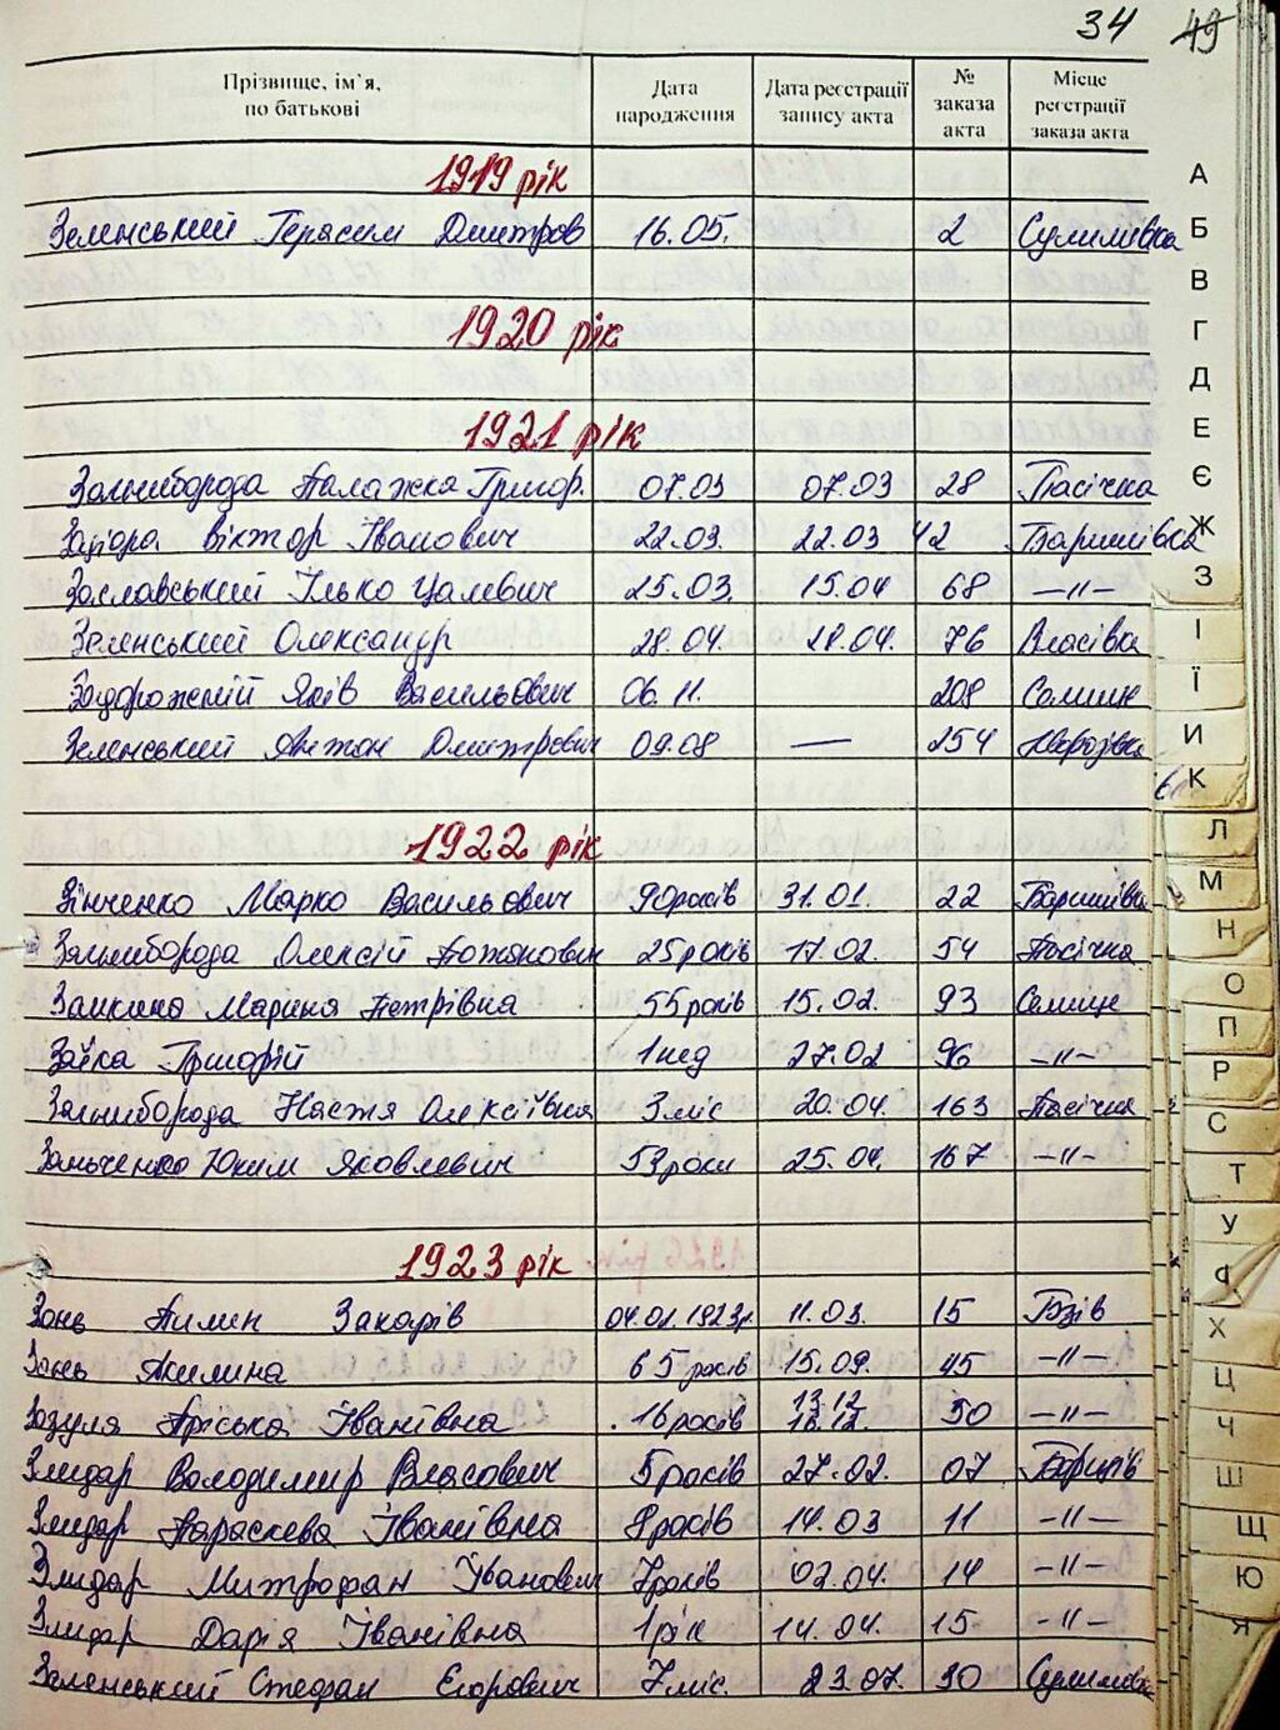 34 49
Прізвище, ім`я, по батькові Дата народження Дата реєстрації запису акта № заказа акта Місце реєстрації заказа акта
1919 рік
Зеленський Герасим Дмитров 16.05. 2 Сулимівка
1920 рік
1921 рік
Зальниборода Палажка Григор. 07.03 07.03 28 Пасічна
Віктор Іванович 22.03. 22.03 42 Баришівка
Заславський Ілько Цалевич 25.03. 15.04 68 —"—
Зеленський Олександр 28.04. 28.04. 76 Власівка
Задорожній Яків Васильович 06.11. 208 Селище
Зеленський Антон Дмитрович 09.08 — 254
1922 рік
Зінченко Марко Васильович 90років 31.01. 22 Баришівка
Зальниборода Олексій 25років 17.02. 54 Пасічна
Заикина Марина Петрівна 55років 15.02. 93 Селище
Заїка Григорій 1нед 27.02 96 —"—
Зальниборода Настя Олексіївна 3міс 20.04. 163 Пасічна
Заньченко Юхим Яковлевич 53роки 25.04. 167 —"—
1923 рік
Зань Пилип Захарів 04.01.1923р. 11.03. 15 Бзів
Зань Акилина 65років 15.09. 45 —"—
Зозуля Пріська Іванівна 16років 13.12 16.12. 50 —"—
Злидар Володимир Власович 5років 27.02. 07 Борщів
Злидар Параскева Іванівна 8років 14.03 11 —"—
Злидар Митрофан Іванович 7років 02.04. 14 —"—
Злидар Дарія Іванівна 1рік 14.04. 15 —"—
Зеленський Стефан Єгорович 7міс. 23.07. 30 Сулимівка
А
Б
В
Г
Д
Е
Є
Ж
З
І
Ї
И
К
Л
М
Н
О
П
Р
С
Т
У
Ф
Х
Ц
Ч
Ш
Щ
Ю
Я